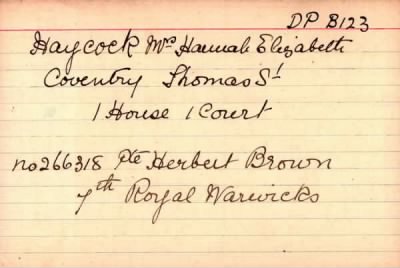 DP B123
Haycock Mrs Hannah Elizabeth
Coventry Thomas St
1 House 1 Court
no 266318 Pte Herbert Brown
7th Royal Warwicks